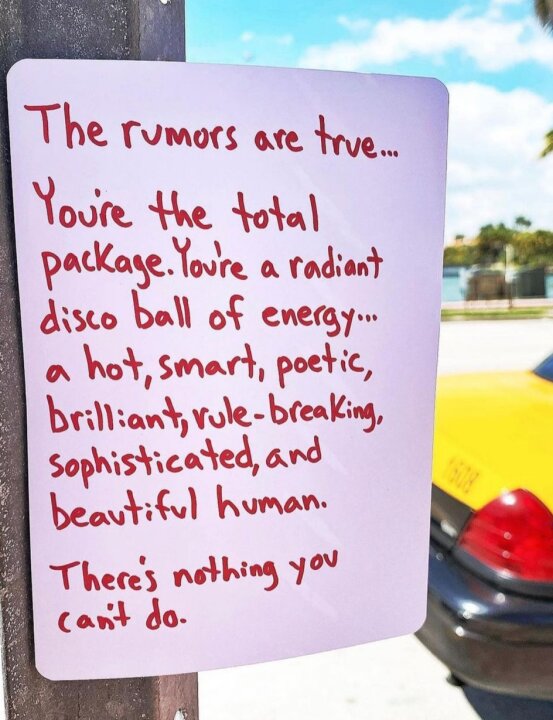 The rumors are true...
You're the total
package. You're a radiant
disco ball of energy...
a hot, smart, poetic,
brilliant, rule-breaking,
sophisticated, and
beautiful human.
There's nothing you
can't do.
1608